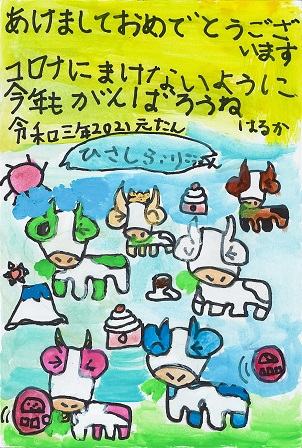 あけましておめでとうござ
います
コロナにまけないように
今年も がんばろうね
令和三年2021元たん はるか